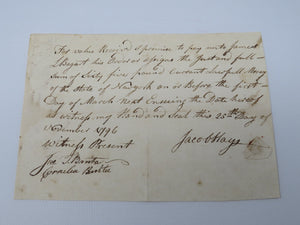 For value Received I promise to pay unto James
J Bogart his Heirs or assigns the Just and full
sum of Sixty five pound Current Lawfull Money
of the State of New york on or Before the first
Day of March next Ensuing the Date hereof
as witness my Hand and Seal this 25th Day of
November 1796
Witness Present
Jacob Hays